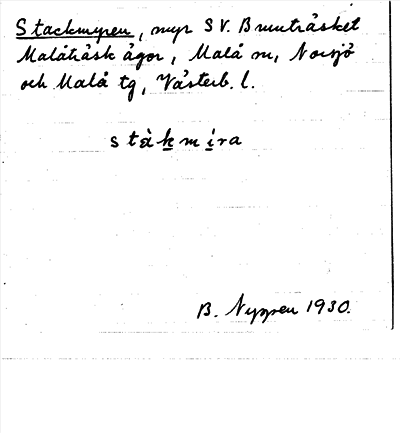 Stackmyren, myr SV. Bruntråsket
Malåträsk ägor, Malå sn, Norsjö
och Malå tg, Västerb. l.
stàkmira
B. Nygren 1930.